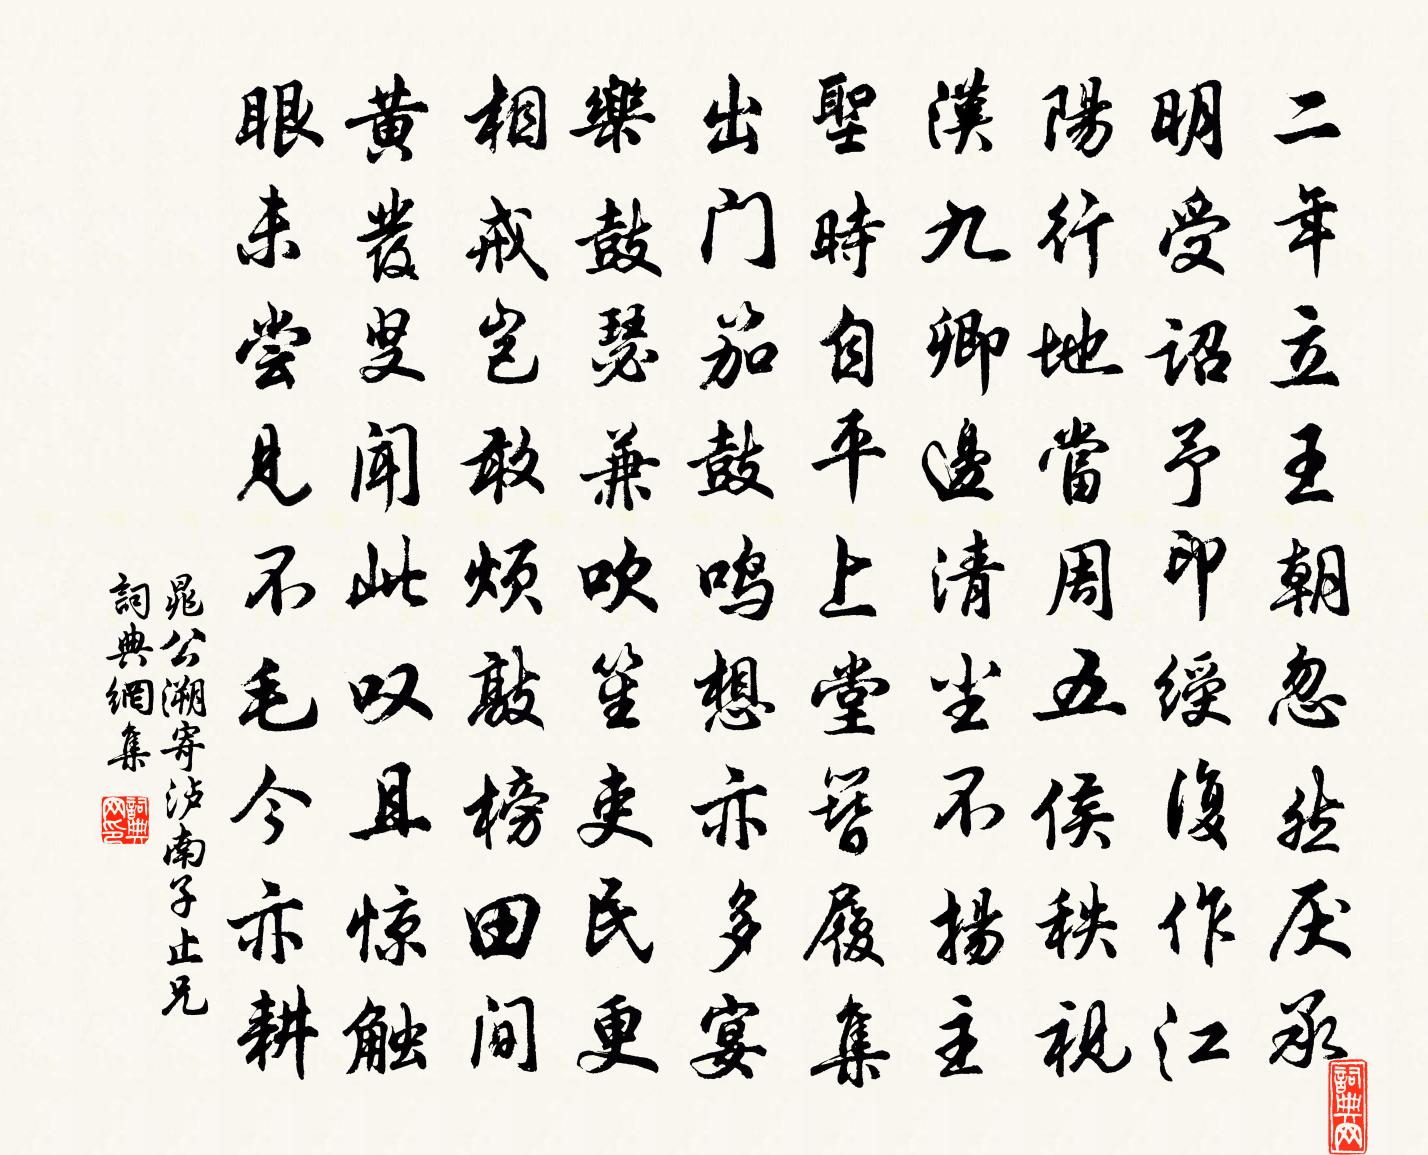 二年立王朝忽然厌承
明受诏予印绶復作江
陽行地當周五侯秩視
漢九卿邊清尘不揚主
聖時自平上堂簪履集
出门笳鼓鸣想亦多宴
樂鼓瑟兼吹笙吏民更
相戒岂敢烦敲榜田间
黄發叟闻此叹且惊触
眼未尝见不毛今亦耕
晁公溯寄泸南子止兄
詞典網集
詞典网印
詞典网